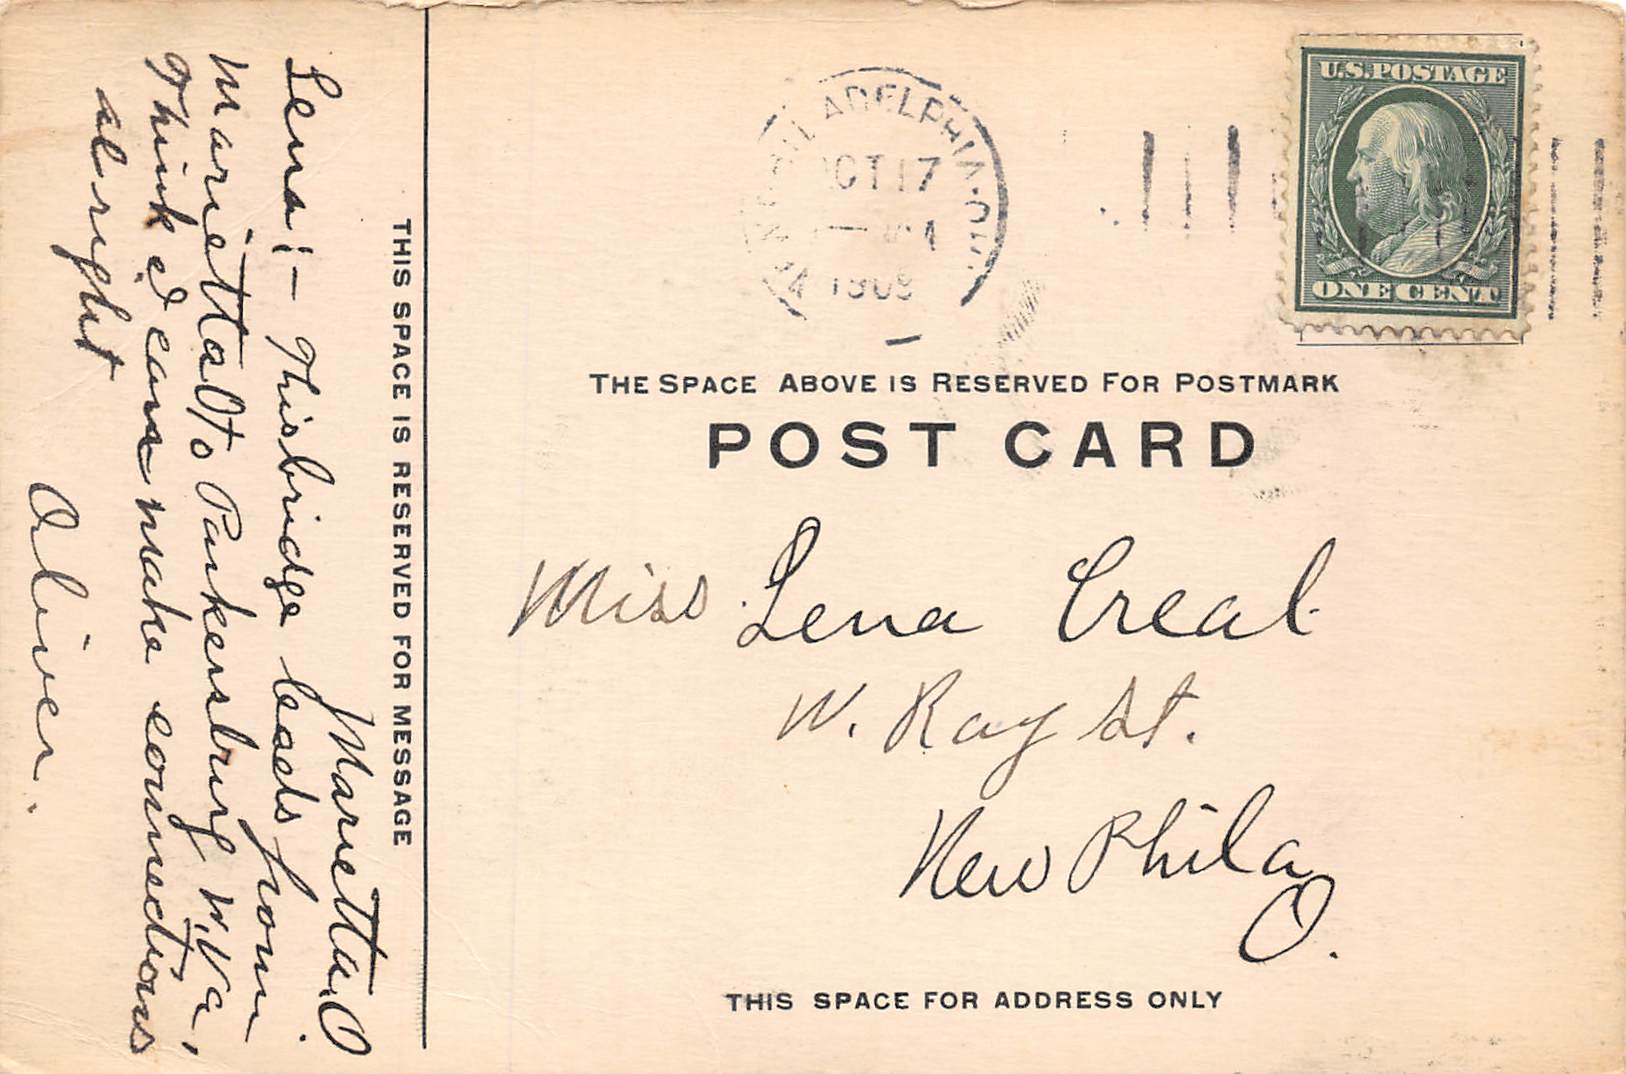 Marietta, O.
Lena! - This bridge leads from
Marietta O to Parkersburg W. Va,
Think I can make connections
al right
Oliver.
THIS SPACE IS RESERVED FOR MESSAGE
PHILADELPHIA
OCT 17
1909
U.S. POSTAGE
ONE CENT
THE SPACE ABOVE IS RESERVED FOR POSTMARK
POST CARD
Miss Lena Creal
W. Ray St.
New Phila
O.
THIS SPACE FOR ADDRESS ONLY